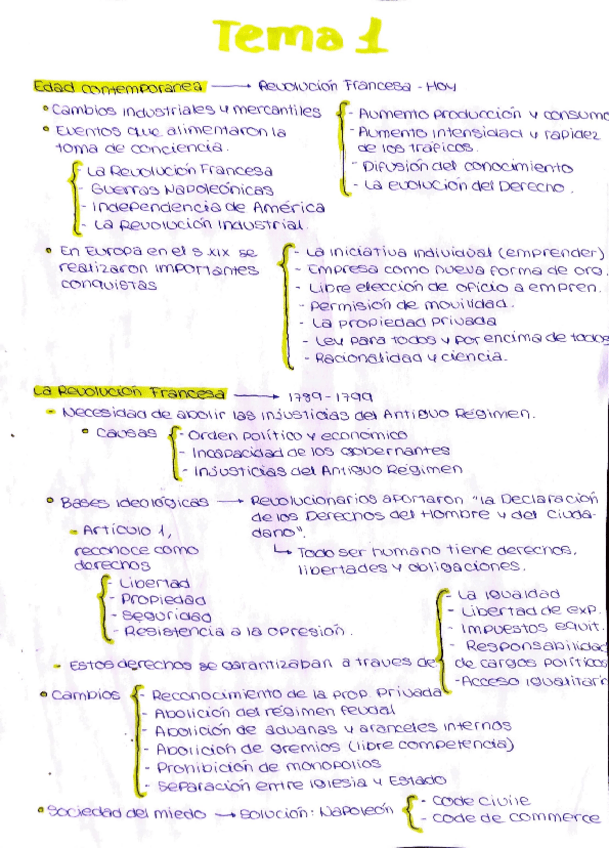 Tema 1
Edad contemporanea → Revolución Francesa - Hoy
• Cambios industriales y mercantiles
- Aumento producción y consumo
- Aumento intensidad y rapidez
de los tráficos.
- Difusión del conocimiento
- La evolución del Derecho.
• Eventos que alimentaron la
toma de conciencia.
- La Revolución Francesa
- Guerras Napoleónicas
- Independencia de América
- La Revolución Industrial.
• En Europa en el s. XIX se
realizaron importantes
conquistas
- La iniciativa individual (emprender)
- Empresa como nueva forma de org.
- Libre elección de oficio a empren.
- Permisión de movilidad.
- La propiedad privada
- Ley para todos y por encima de todos
- Racionalidad y ciencia.
La Revolución Francesa → 1789 - 1799
- Necesidad de abolir las injusticias del Antiguo Régimen.
• Causas
- Orden político y económico
- Incapacidad de los gobernantes
- Injusticias del Antiguo Régimen
• Bases ideológicas → Revolucionarios aportaron "la Declaración
de los Derechos del Hombre y del Ciuda-
dano".
↳ Todo ser humano tiene derechos,
libertades y obligaciones.
- Artículo 1,
reconoce como
derechos
- Libertad
- Propiedad
- Seguridad
- Resistencia a la opresión.
- Estos derechos se garantizaban a traves de
- La igualdad
- Libertad de exp.
- Impuestos equit.
- Responsabilidad
de cargos políticos
- Acceso igualitari
• Cambios
- Reconocimiento de la prop. privada
- Abolición del régimen feudal
- Abolición de aduanas y aranceles internos
- Abolición de gremios (libre competencia)
- Prohibición de monopolios
- Separación entre Iglesia y Estado
• Sociedad del miedo → Solución: Napoleón
- Code civile
- Code de commerce